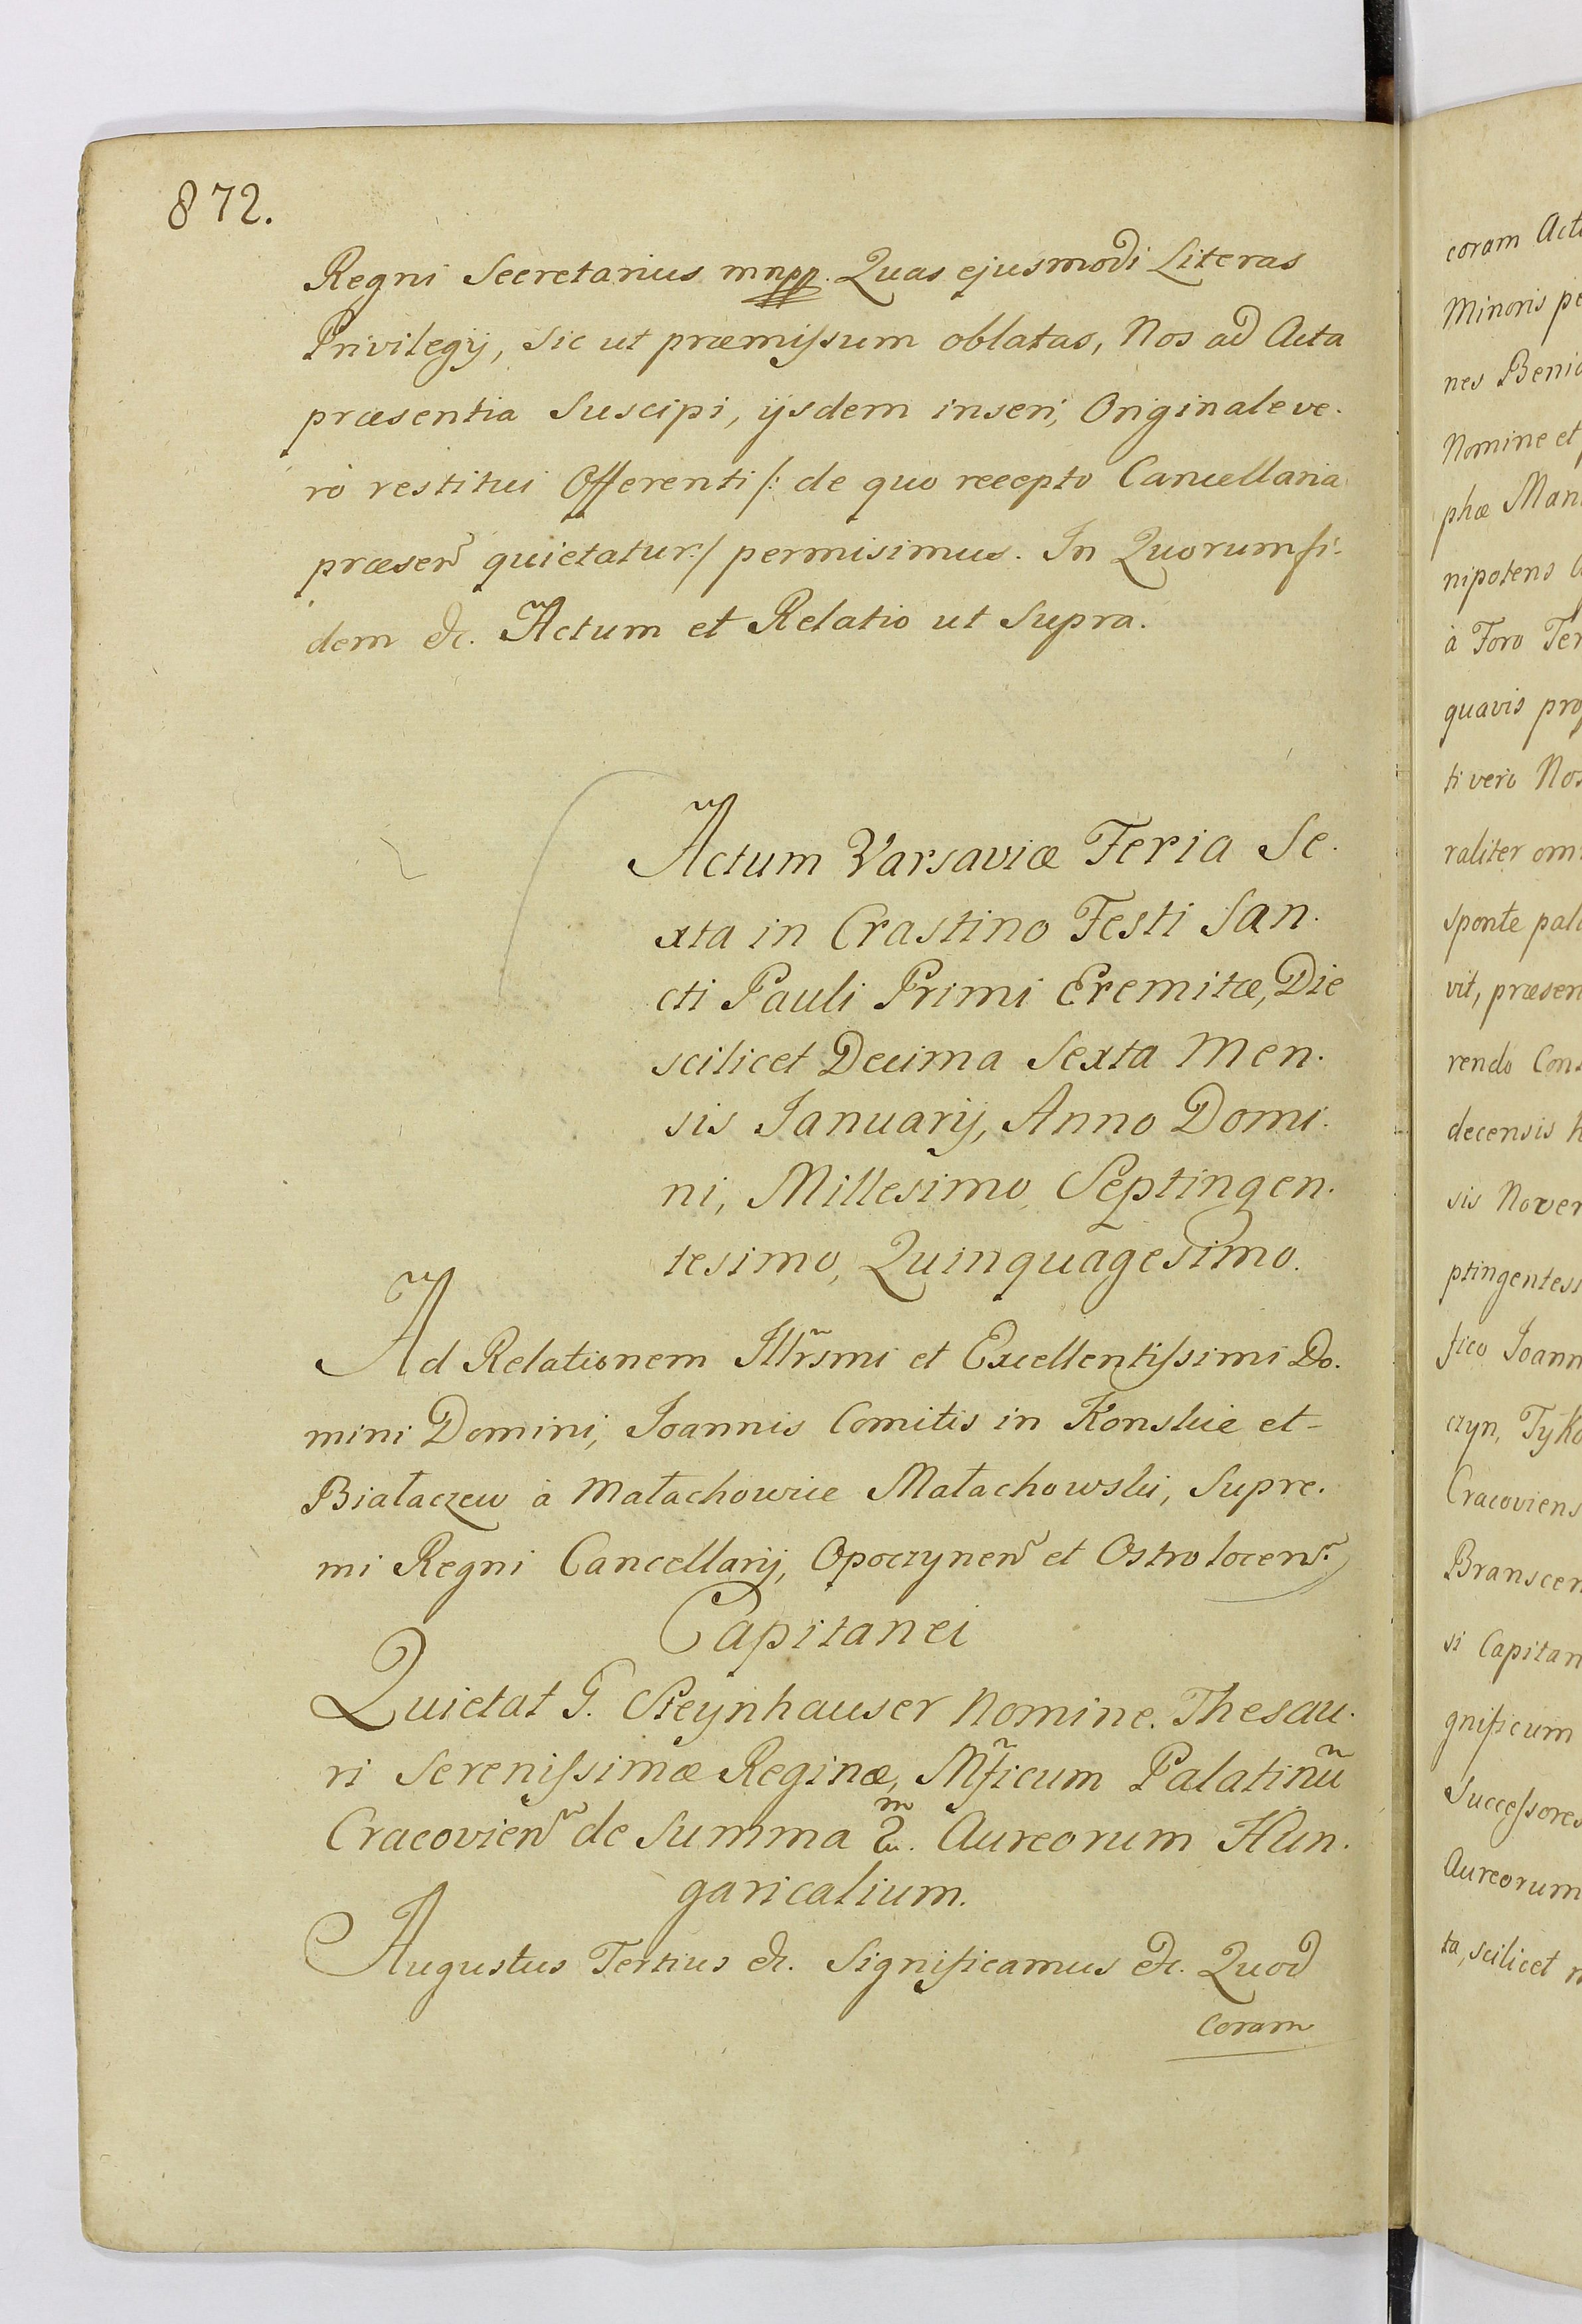 872.
Regni Secretarius mnpp. Quas ejusmodi Literas
Privilegij, Sic ut præmissum oblatas, Nos ad Acta
præsentia Suscipi, ijsdem inseri, Originale ve.
rò restitui Offerenti /: de quo recepto Cancellaria
præsen̄ quietatur :/ permisimus. In Quorum fi.
dem &c. Actum et Relatio ut Supra.
Actum Varsaviæ Feria Se.
xta in Crastino Festi San.
cti Pauli Primi Eremitæ, Die
scilicet Decima Sexta Men.
sis Januarij, Anno Domi.
ni, Millesimo, Septingen.
tesimo, Quinquagesimo.
Ad Relationem Illr̃smi et Excellentissimi Do.
mini Domini, Joannis Comitis in Konskie et
Białaczew à Małachowice Małachowski, Supre.
mi Regni Cancellarij, Opoczynen̄ et Ostrołocen̄.
Capitanei
Quietat G. Steynhauser Nomine Thesau.
ri Serenissimæ Reginæ, Mf̃icum Palatinū
Cracovien̄ de Summa 2m. Aureorum Hun.
garicalium.
Augustus Tertius &c. Significamus &c. Quod
coram
coram Acti
Minoris pe
nes Benio
Nomine et
phæ Man
nipotens
à Foro Ter
quavis pro
ti verò Nos
raliter om
sponte pal
vit, præsen
rendo Cons
decensis h
sis Nover
ptingentes
fico Joann
czyn, Tyko
Cracoviens
Branscen
si Capitan
gnificum
Successores
Aureorum
ta, scilicet